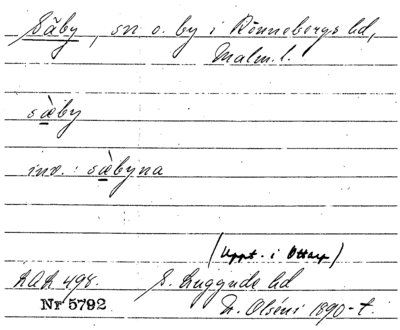 Säby, sn o. by i Rönnebergs hd,
Malm. l.
sæ̀by
inv.: sæ̀byna
(Uppt. i Ottarp)
LAL 498. S. Luggude hd
Nr 5792 N. Olséni 1890-t.